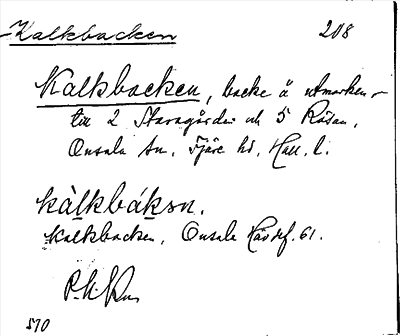 Kalkbacken 208
Kalkbacken, backe å utmarken
till 2 Staragården och 5 Rösan,
Onsala sn, Fjäre hd, Hall. l.
kàlkbáksn.
Kalkbacken, Onsala Häradsf. 61.
510